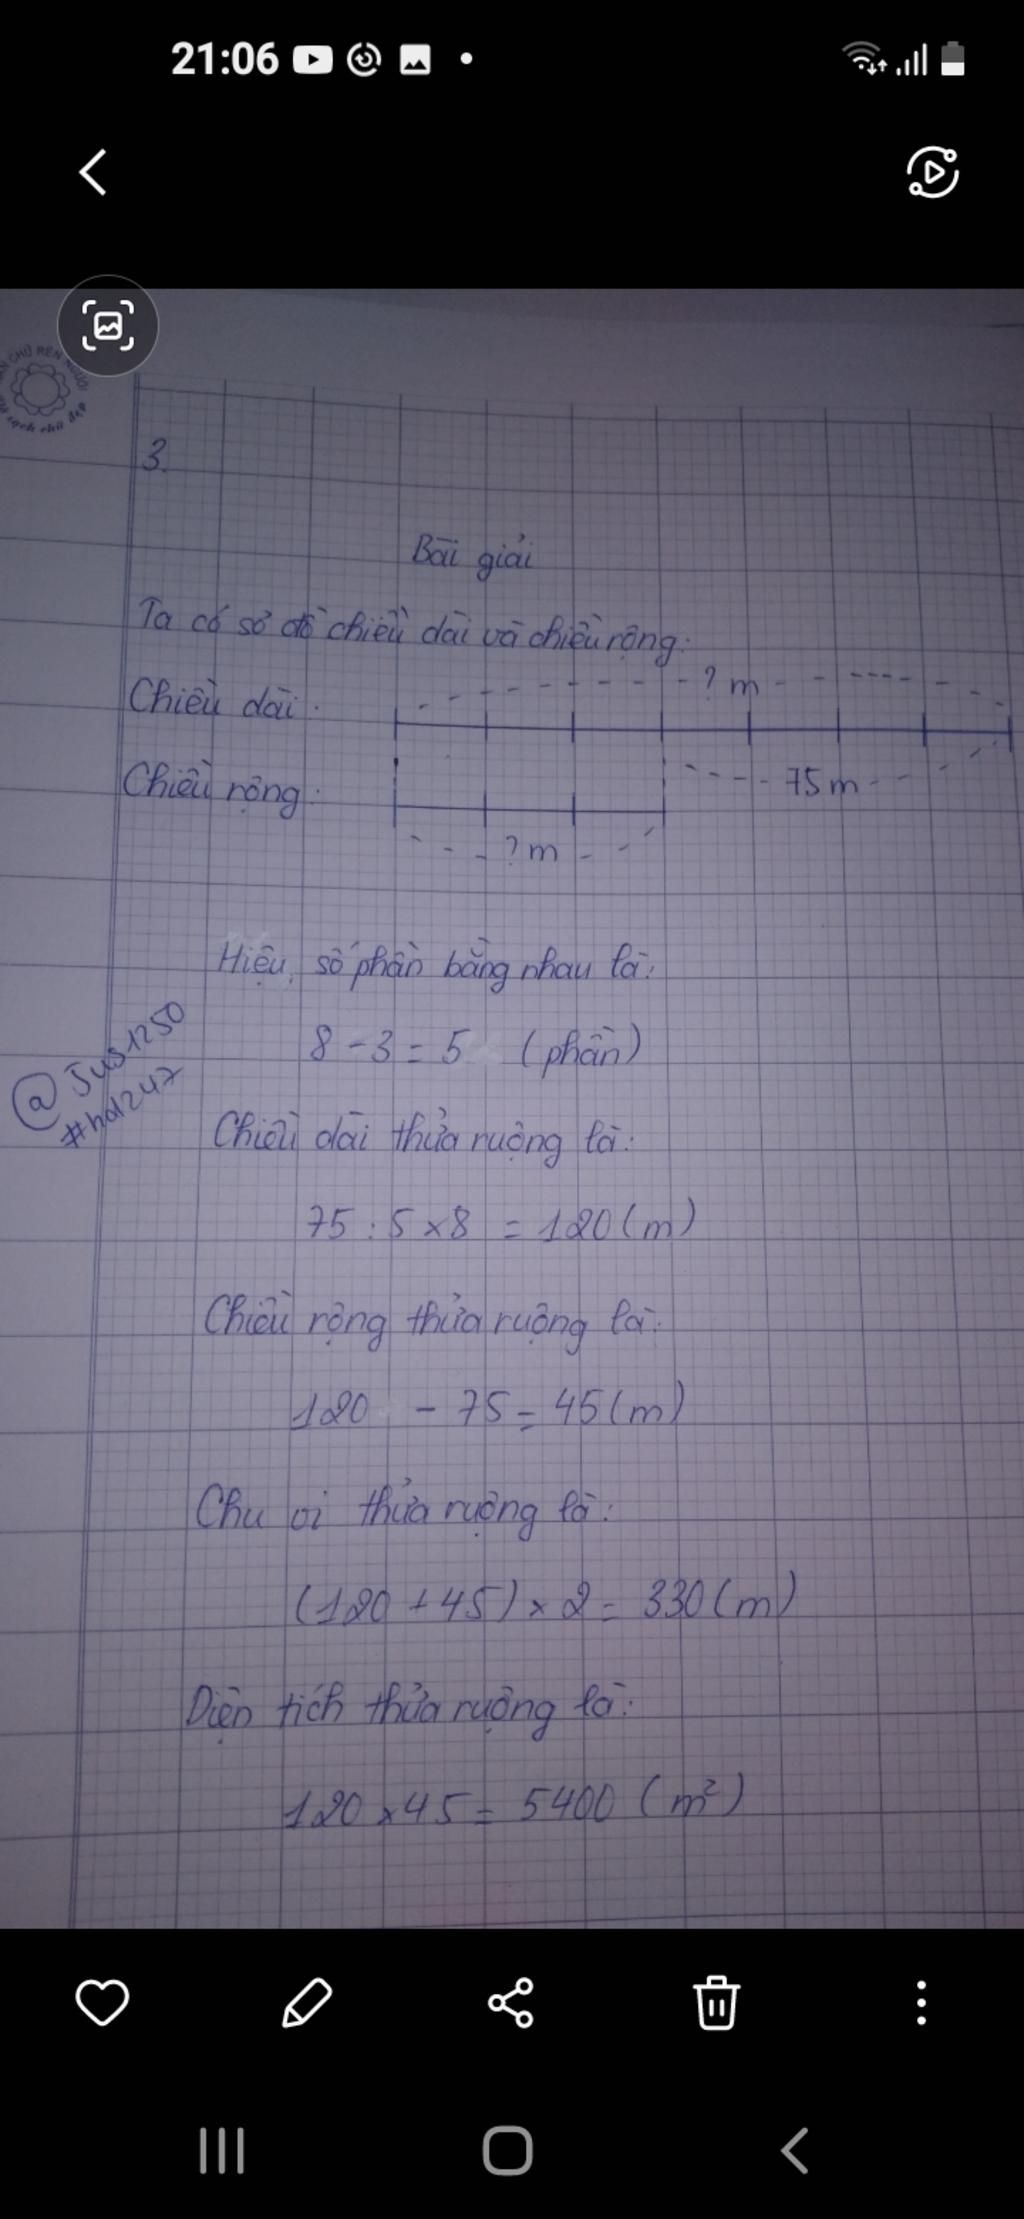 21:06
CHỮ RÈN NGƯỜI
sạch chữ đẹp
3.
Bài giải
Ta có sơ đồ chiều dài và chiều rộng:
? m
Chiều dài:
75m
Chiều rộng:
? m
Hiệu số phần bằng nhau là:
8 - 3 = 5 (phần)
@Jus1250
#hd247
Chiều dài thửa ruộng là:
75 : 5 x 8 = 120 (m)
Chiều rộng thửa ruộng là:
120 - 75 = 45 (m)
Chu vi thửa ruộng là:
(120 + 45) x 2 = 330 (m)
Diện tích thửa ruộng là:
120 x 45 = 5400 (m²)